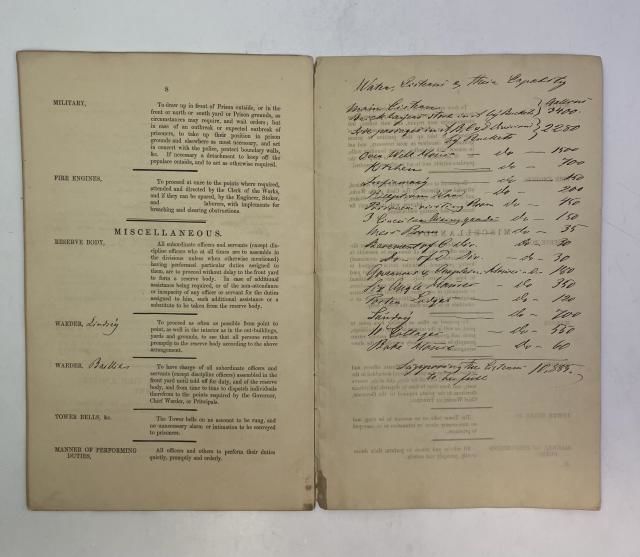 8
MILITARY,
To draw up in front of Prison outside, or in the
front or north or south yard or Prison grounds, as
circumstances may require, and wait orders; but
in case of an outbreak or expected outbreak of
prisoners, to take up their position in prison
grounds and elsewhere as most necessary, and act
in concert with the police, protect boundary walls,
&c. If necessary a detachment to keep off the
populace outside, and to act as otherwise required.
FIRE ENGINES,
To proceed at once to the points where required,
attended and directed by the Clerk of the Works,
and if they can be spared, by the Engineer, Stoker,
and labourers, with implements for
breaching and clearing obstructions.
MISCELLANEOUS.
RESERVE BODY,
All subordinate officers and servants (except dis-
cipline officers who at all times are to assemble in
the divisions unless when otherwise mentioned)
having performed particular duties assigned to
them, are to proceed without delay to the front yard
to form a reserve body. In case of additional
assistance being required, or of the non-attendance
or incapacity of any officer or servant for the duties
assigned to him, such additional assistance or a
substitute to be taken from the reserve body.
WARDER, Lindsey
To proceed as often as possible from point to
point, as well in the interior as in the out-buildings,
yards and grounds, to see that all persons return
promptly to the reserve body according to the above
arrangement.
WARDER,
To have charge of all subordinate officers and
servants (except discipline officers) assembled in the
front yard until told off for duty, and of the reserve
body, and from time to time to dispatch individuals
therefrom to the points required by the Governor,
Chief Warder, or Principals.
TOWER BELLS, &c.
The Tower bells on no account to be rung, and
no unnecessary alarm or intimation to be conveyed
to prisoners.
MANNER OF PERFORMING DUTIES,
All officers and others to perform their duties
quietly, promptly and orderly.
Water Cisterns & their Capacity
Main Cistern Gallons
3400
2280
by Buckets
Well House do 1500
Kitchen do 700
Infirmary do 450
do 200
do 450
3 Circular do 150
do 35
Basement of C Div. do 30
Do of D Div. do 30
do 100
do 350
Porters Lodges do 120
Laundry do 700
Cottages do 580
Bake House do 60
Supposing the Cistern
to be full